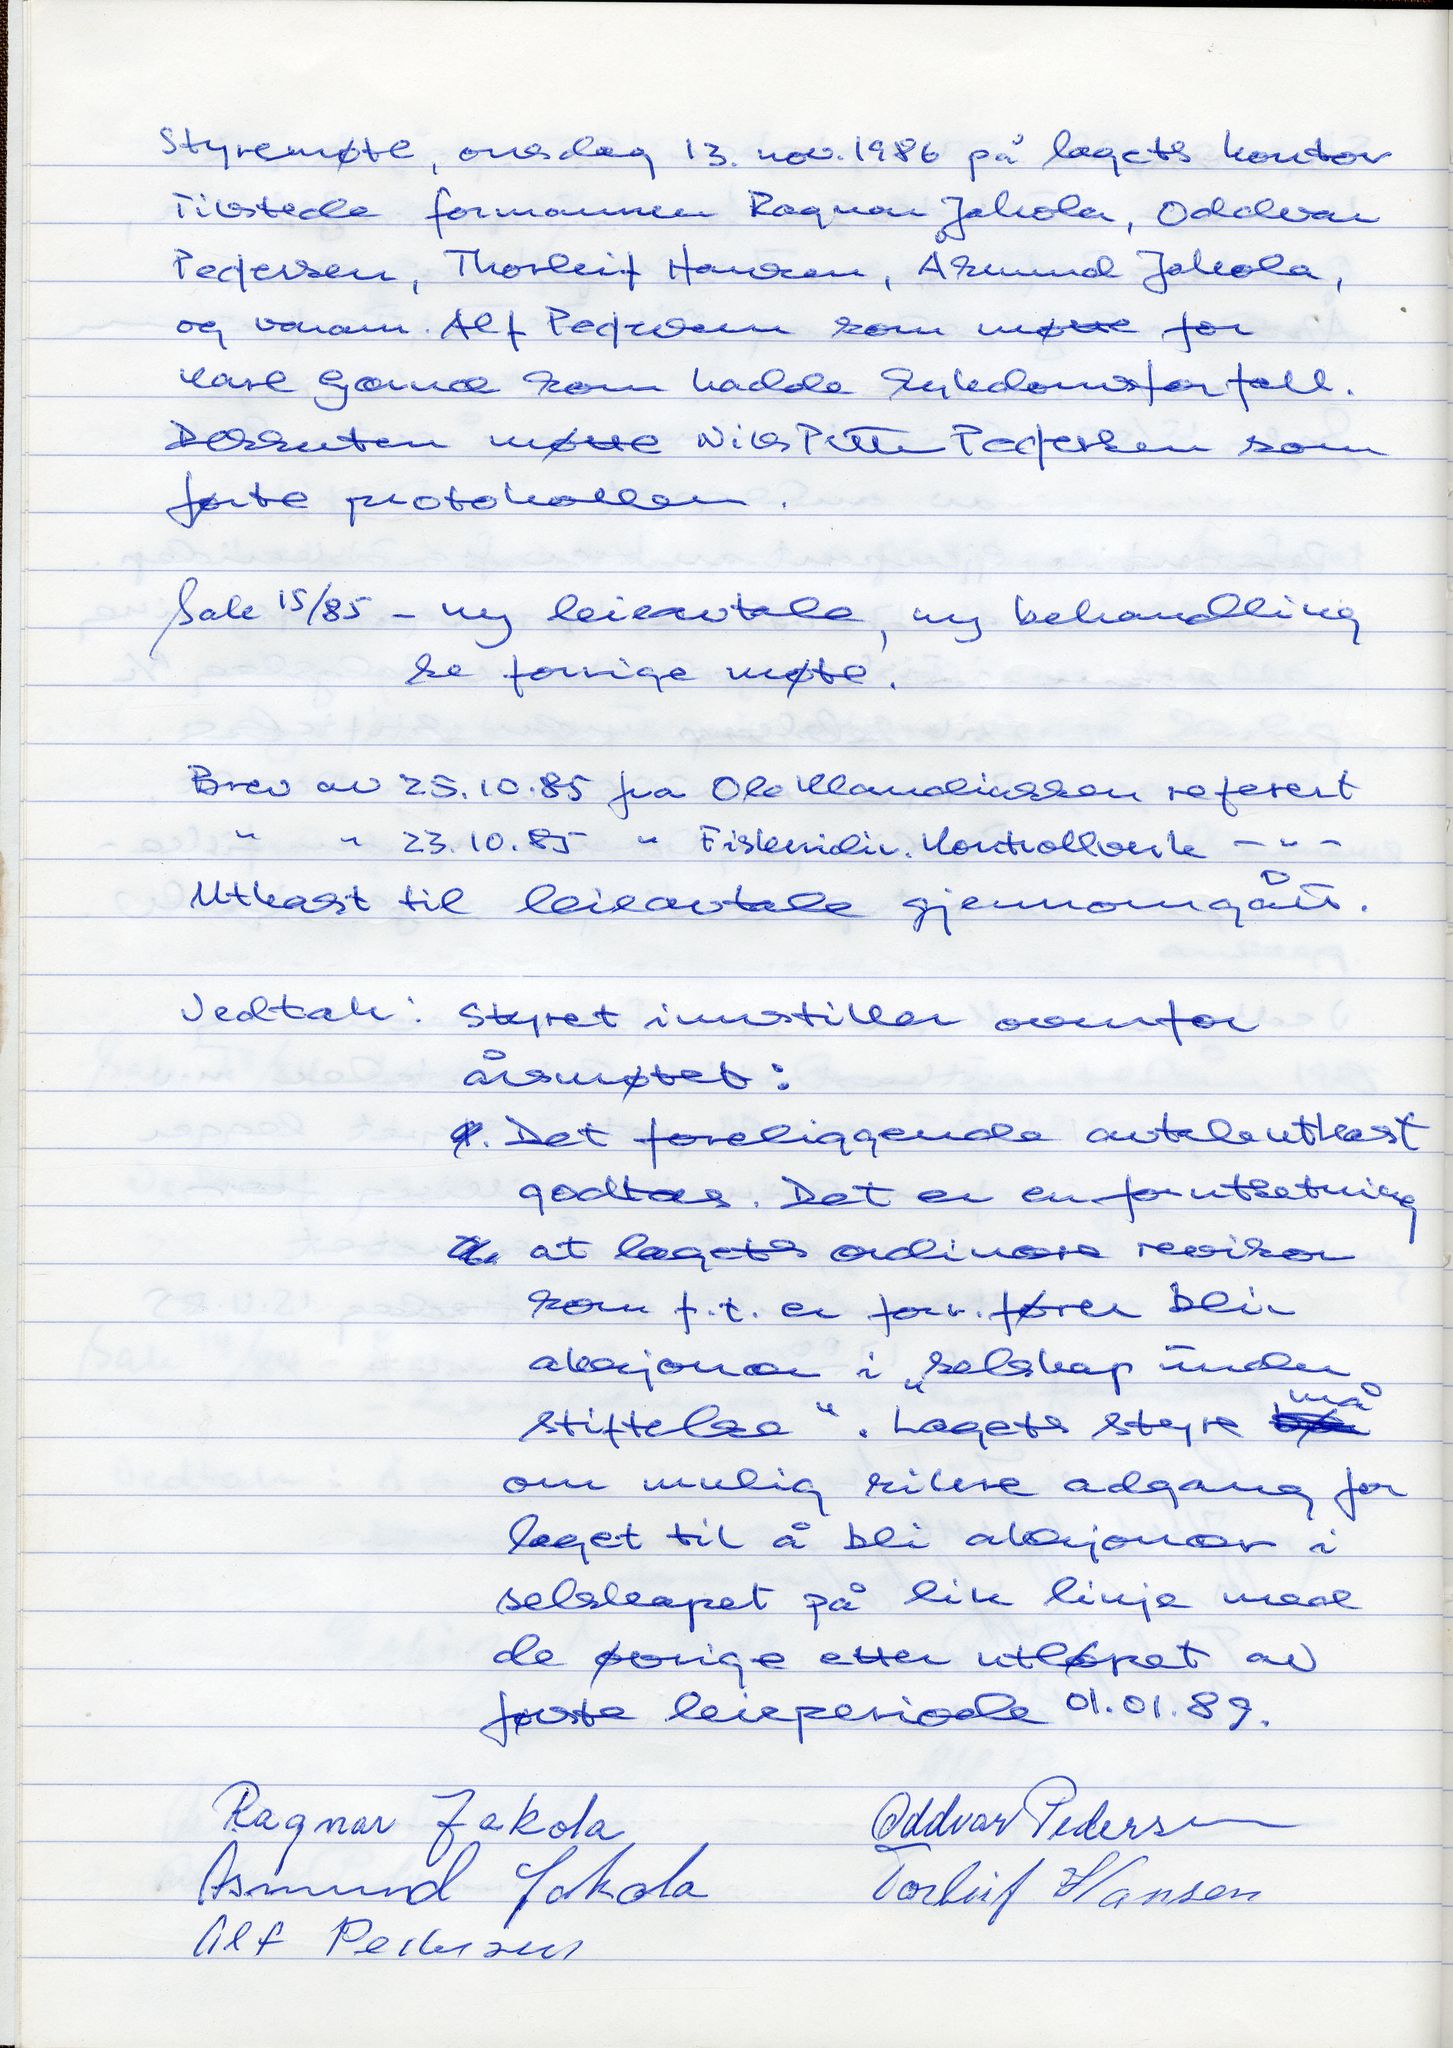 Styremøte, onsdag 13. nov. 1986 på lagets kontor
Tilstede formannen Ragnar Jakola, Oddvar
Pedersen, Thorleif Hansen, Åsmund Jakola,
og varam. Alf Pedersen som møtte for
Kare som hadde sykdomsforfall.
Dessuten møtte Nils Petter Pedersen som
førte protokollen.
Sak 15/85 - ny leieavtale, ny behandling
se forrige møte.
Brev av 25.10.85 fra Ole Klaudiussen referert
" " 23.10.85 " Fiskeridir. Kontrollverk - " -
Utkast til leieavtale gjennomgått.
Vedtak: Styret innstiller ovenfor
årsmøtet:
Det foreliggende avtaleutkast
godtas. Det er en forutsetning
at lagets ordinære revisor
som f.t. er forr.fører blir
aksjonær i "selskap under
stiftelse". Lagets styre må
om mulig sikre adgang for
laget til å bli aksjonær i
selskapet på lik linje med
de øvrige etter utløpet av
første leieperiode 01.01.89.
Ragnar Jakola Oddvar Pedersen
Asmund Jakola Torleif Hansen
Alf Pedersen